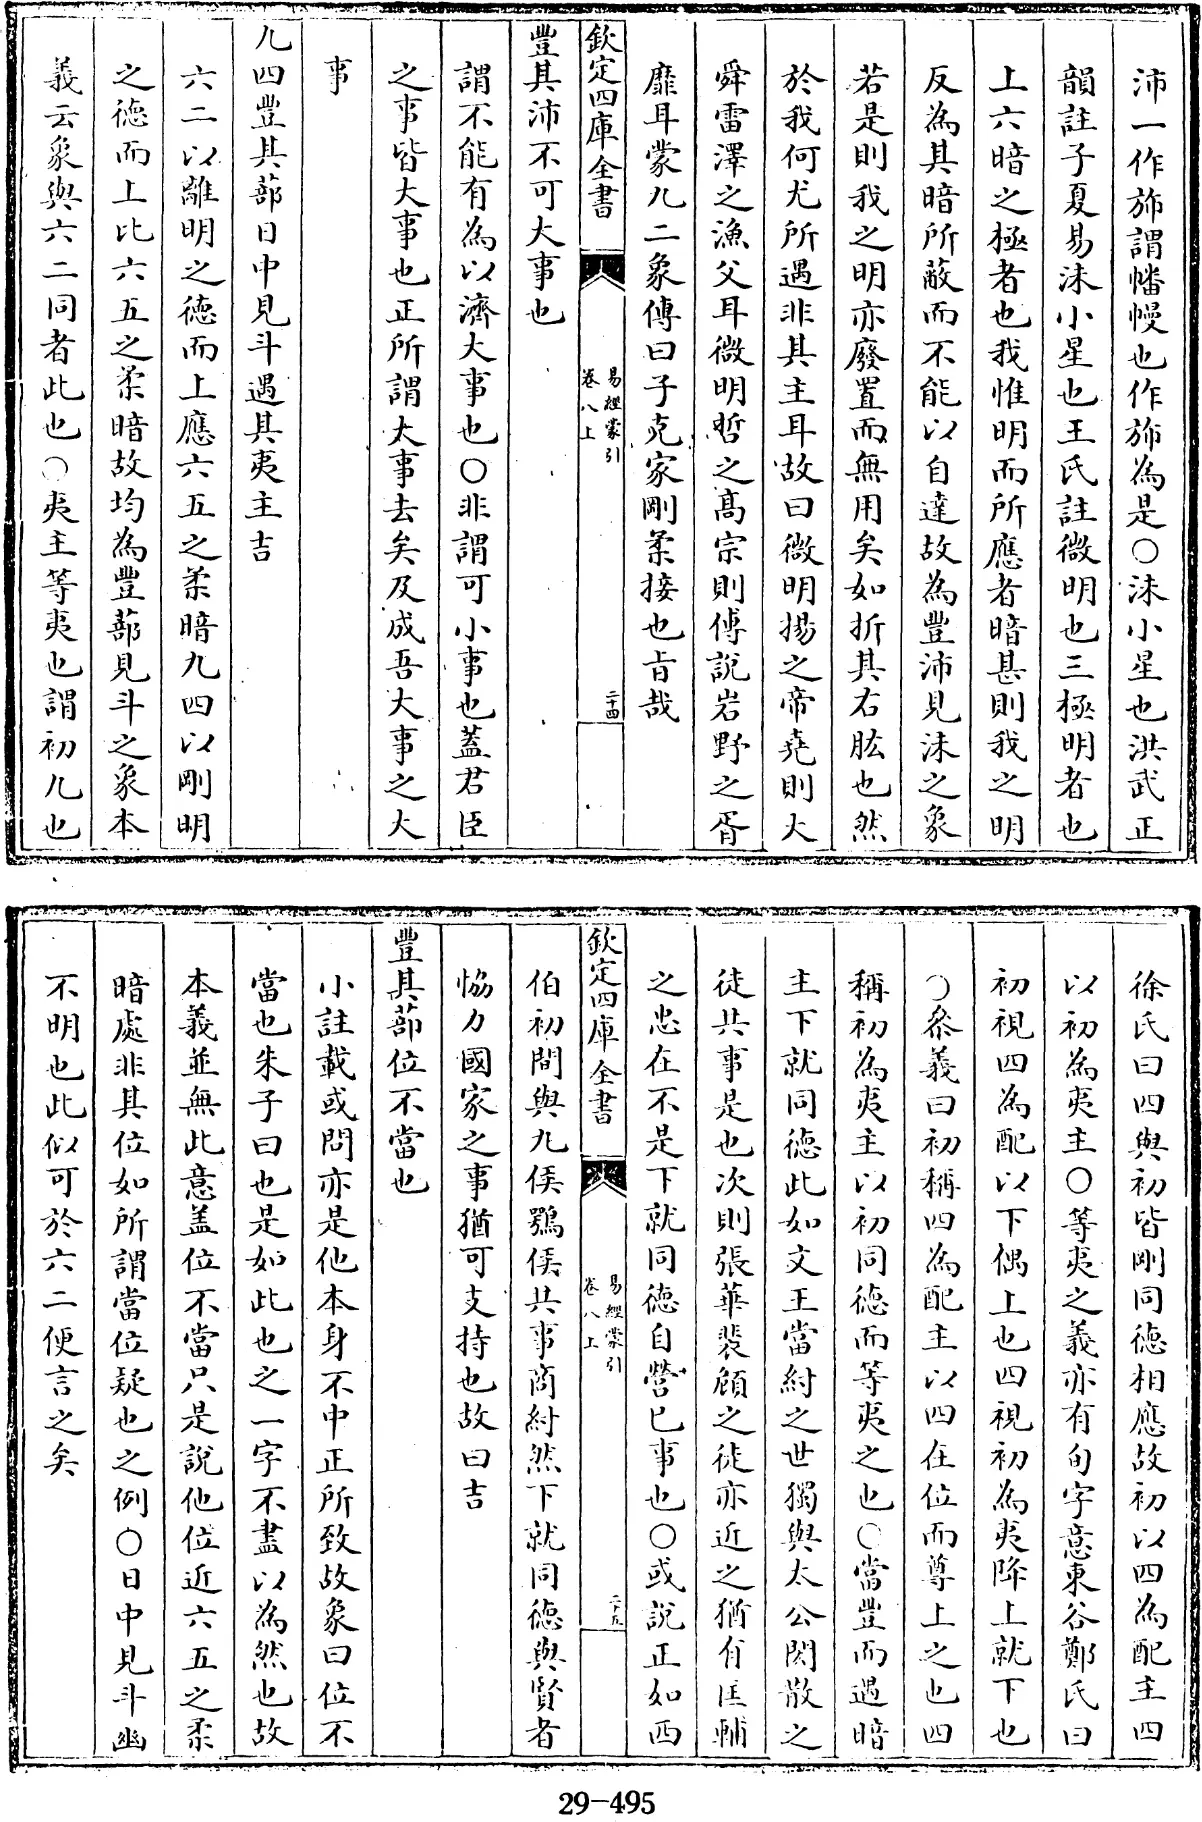 沛一作斾謂幡幔也作斾為是○沬小星也洪武正
韻註子夏易沬小星也王氏註微明也三極明者也
上六暗之極者也我惟明而所應者暗甚則我之明
反為其暗所蔽而不能以自達故為豐沛見沬之象
若是則我之明亦廢置而無用矣如折其右肱也然
於我何尤所遇非其主耳故曰微明揚之帝堯則大
舜雷澤之漁父耳微明哲之髙宗則傅說岩野之胥
靡耳蒙九二象傳曰子克家剛柔接也旨哉
欽定四庫全書
易經蒙引
卷八上
二十四
豐其沛不可大事也
謂不能有為以濟大事也○非謂可小事也蓋君臣
之事皆大事也正所謂大事去矣及成吾大事之大
事
九四豐其蔀日中見斗遇其夷主吉
六二以離明之德而上應六五之柔暗九四以剛明
之德而上比六五之柔暗故均為豐蔀見斗之象本
義云象與六二同者此也○夷主等夷也謂初九也
徐氏曰四與初皆剛同德相應故初以四為配主四
以初為夷主○等夷之義亦有旬字意東谷鄭氏曰
初視四為配以下偶上也四視初為夷降上就下也
○叅義曰初稱四為配主以四在位而尊上之也四
稱初為夷主以初同德而等夷之也○當豐而遇暗
主下就同德此如文王當紂之世獨與太公閎散之
徒共事是也次則張華裴頠之徒亦近之猶有匡輔
之忠在不是下就同德自營已事也○或說正如西
欽定四庫全書
易經蒙引
卷八上
二十五
伯初間與九侯鄂侯共事商紂然下就同德與賢者
恊力國家之事猶可支持也故曰吉
豐其蔀位不當也
小註載或問亦是他本身不中正所致故象曰位不
當也朱子曰也是如此也之一字不盡以為然也故
本義並無此意蓋位不當只是說他位近六五之柔
暗處非其位如所謂當位疑也之例○日中見斗幽
不明也此似可於六二便言之矣
29-495